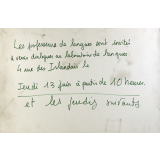 Les professeurs de langues sont invités
à venir dialoguer au laboratoire de langues
4 rue des Irlandais le
Jeudi 13 juin à partir de 10 heures
et les jeudis suivants